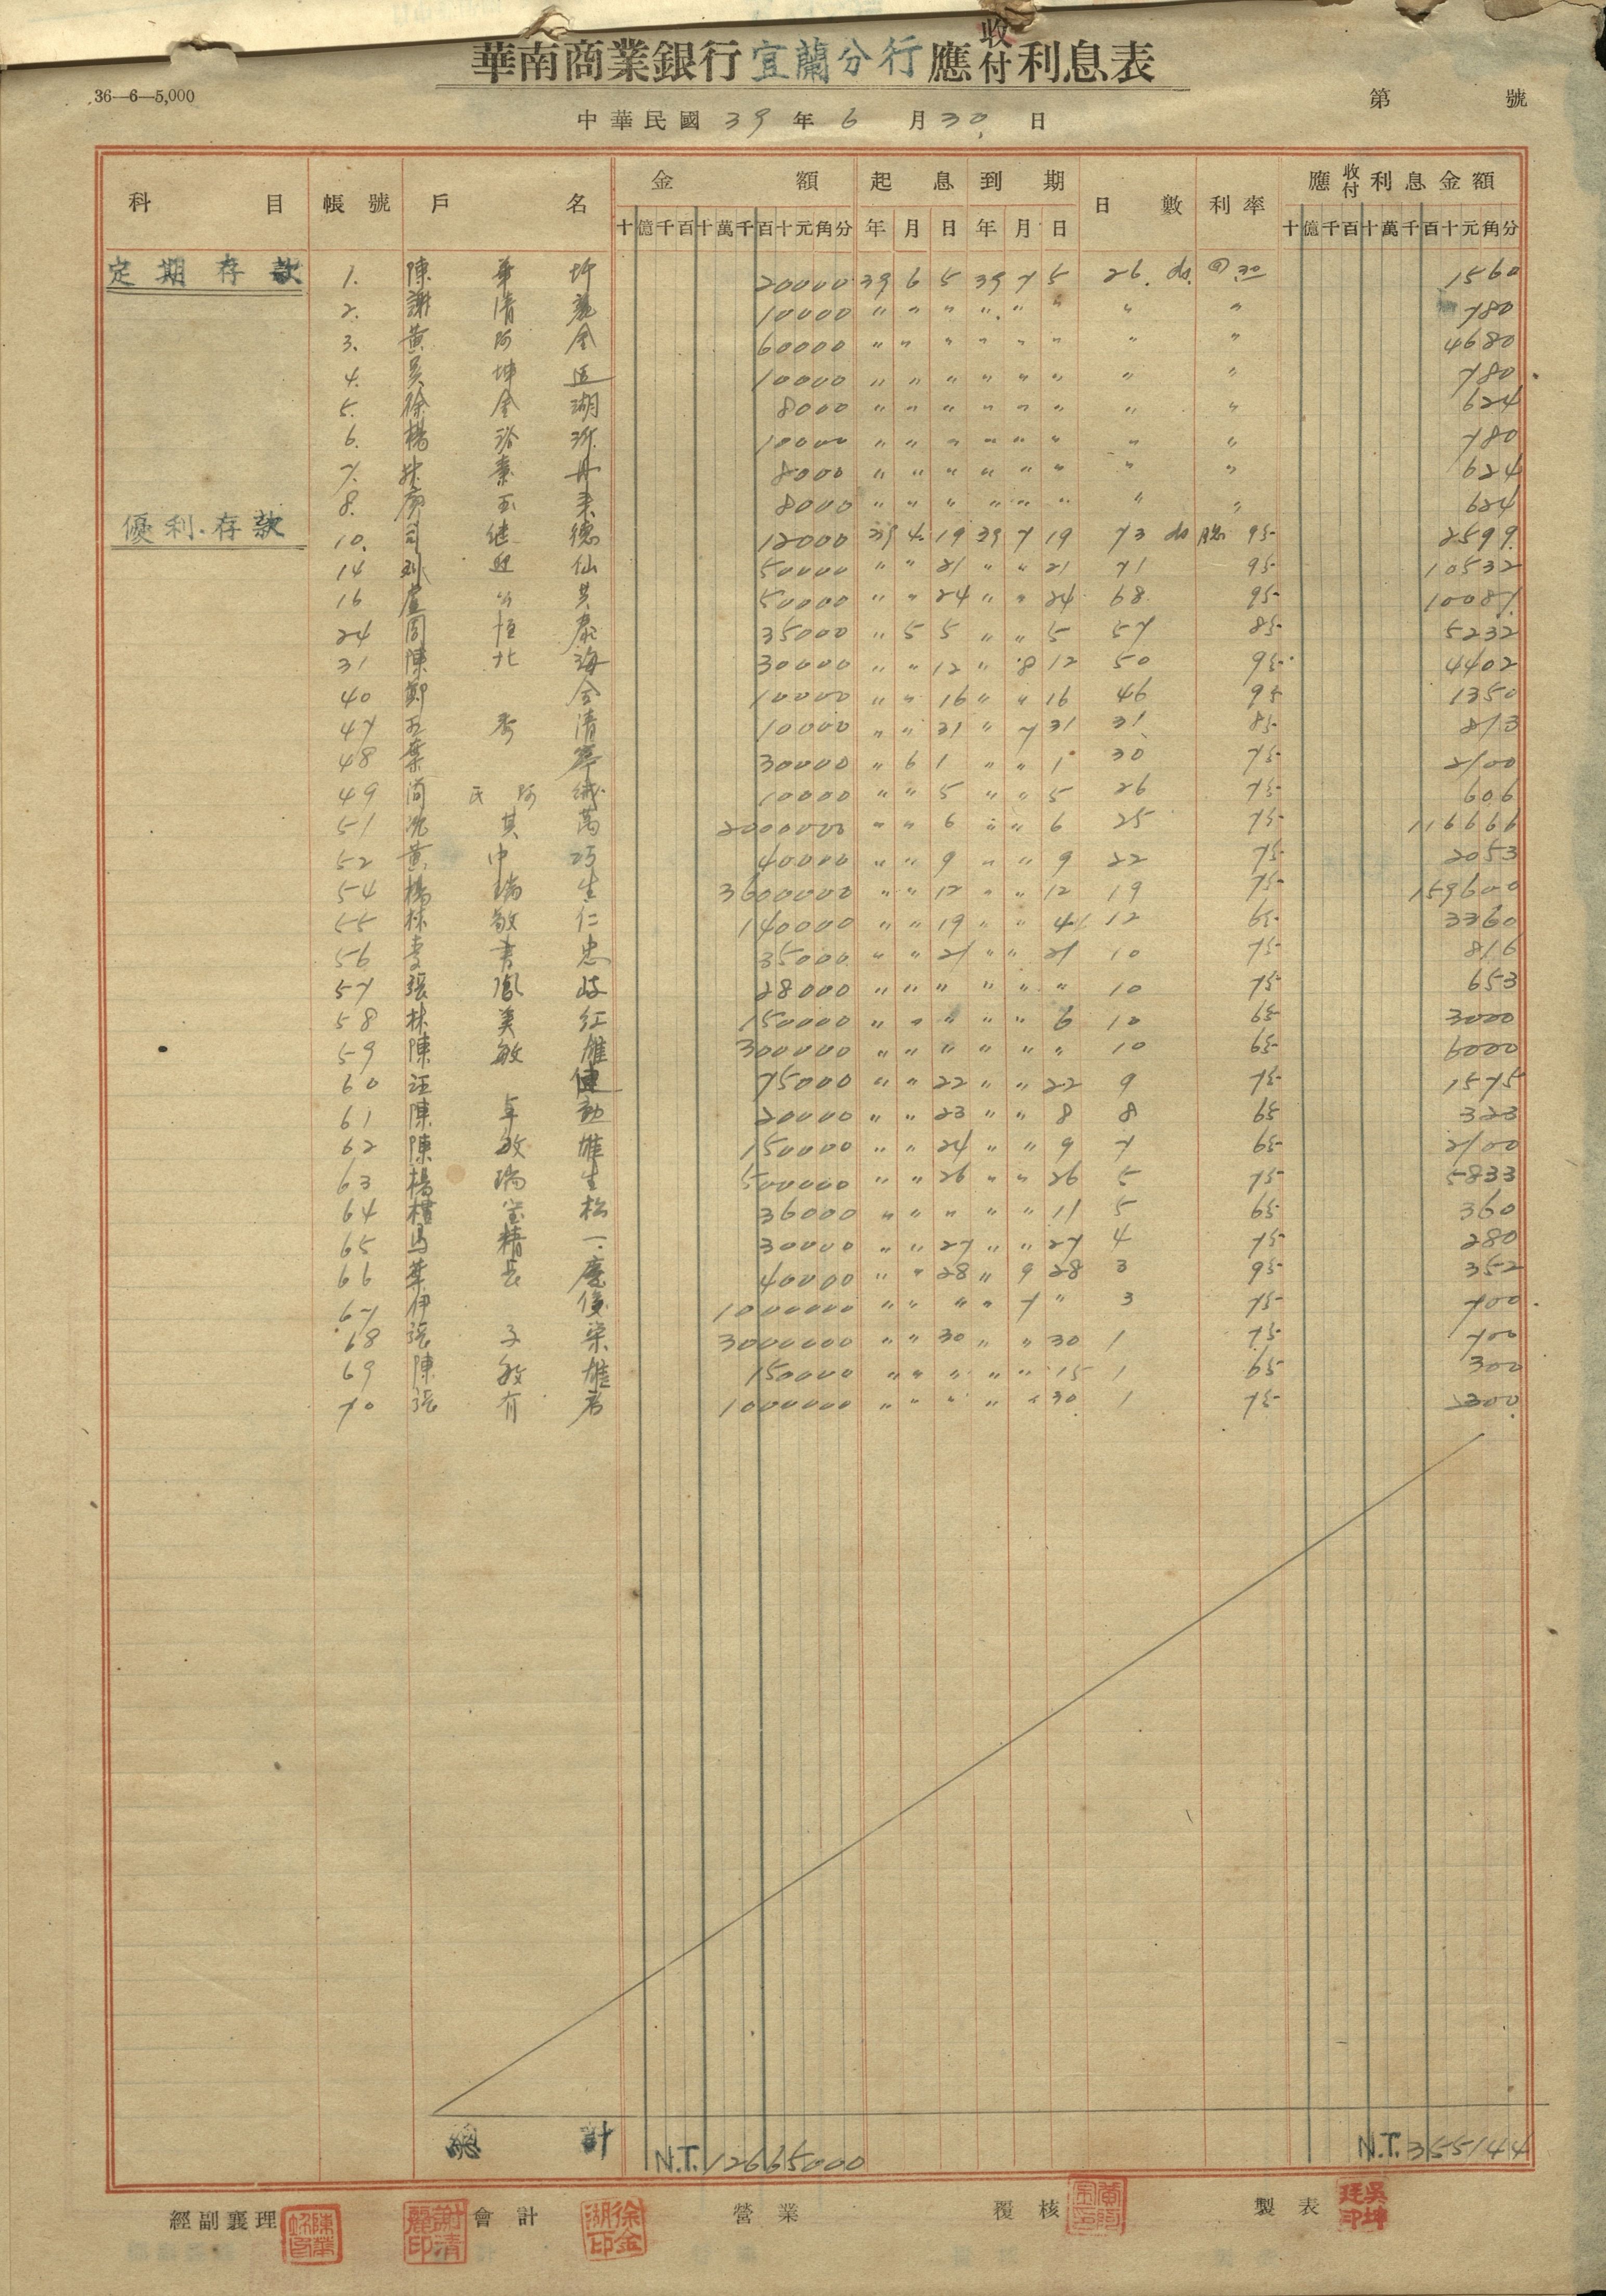 華南商業銀行宜蘭分行應收付利息表
36—6—5,000
第 號
中華民國 39 年 6 月 30 日
科目 帳號 戶名 金額 起息 到期 日數 利率 應收付利息金額
十億千百十萬千百十元角分 年 月 日 年 月 日 十億千百十萬千百十元角分
定期存款 1. 陳華 20000 39 6 5 39 7 5 26 ds @ 30 1560
2. 謝清麗 10000 〃 〃 〃 〃 〃 〃 〃 〃 780
3. 黃阿金 60000 〃 〃 〃 〃 〃 〃 〃 〃 4680
4. 吳坤廷 10000 〃 〃 〃 〃 〃 〃 〃 〃 780
5. 徐金湖 8000 〃 〃 〃 〃 〃 〃 〃 〃 624
6. 楊 10000 〃 〃 〃 〃 〃 〃 〃 〃 780
7. 8000 〃 〃 〃 〃 〃 〃 〃 〃 624
8. 廖玉 8000 〃 〃 〃 〃 〃 〃 〃 〃 624
優利存款 10. 司繼德 12000 39 4 19 39 7 19 73 ds 95 2599
14 仙 50000 〃 〃 21 〃 〃 21 71 95 10532
16 盧 50000 〃 〃 24 〃 〃 24 68 95 10087
24 周恒康 35000 〃 5 5 〃 〃 5 57 85 5232
31 陳北海 30000 〃 〃 12 〃 8 12 50 95 4402
40 鄭金 10000 〃 〃 16 〃 〃 16 46 95 1350
47 清 10000 〃 〃 31 〃 7 31 31 85 813
48 葉 30000 〃 6 1 〃 〃 1 30 75 2100
49 簡氏阿 10000 〃 〃 5 〃 〃 5 26 75 606
51 沈其萬 2000000 〃 〃 6 〃 〃 6 25 75 116666
52 黃中巧 40000 〃 〃 9 〃 〃 9 22 75 2053
54 楊瑞生 3600000 〃 〃 12 〃 〃 12 19 75 159600
55 林敬仁 140000 〃 〃 19 〃 〃 4 12 65 3360
56 李書忠 35000 〃 〃 21 〃 〃 21 10 75 816
57 張鳳岐 28000 〃 〃 〃 〃 〃 〃 10 75 653
58 林美紅 150000 〃 〃 〃 〃 〃 6 10 65 3000
59 陳敏雄 300000 〃 〃 〃 〃 〃 〃 10 65 6000
60 汪健 75000 〃 〃 22 〃 〃 22 9 75 1575
61 陳卓勳 20000 〃 〃 23 〃 〃 8 8 65 323
62 陳敏雄 150000 〃 〃 24 〃 〃 9 7 65 2100
63 楊瑞生 500000 〃 〃 26 〃 〃 26 5 75 5833
64 松 36000 〃 〃 〃 〃 〃 11 5 65 360
65 馬精一 30000 〃 〃 27 〃 〃 27 4 75 280
66 葉長慶 40000 〃 〃 28 〃 9 28 3 95 352
67 伊俊 1000000 〃 〃 〃 〃 7 〃 3 75 700
68 張子 3000000 〃 〃 30 〃 〃 30 1 75 700
69 陳敏雄 150000 〃 〃 〃 〃 〃 15 1 65 300
70 張有君 1000000 〃 〃 〃 〃 〃 30 1 75 2300
總計 N.T.12665000 N.T.355144
經副襄理 會計 營業 覆核 製表
謝清麗印 徐金湖印 吳坤廷印